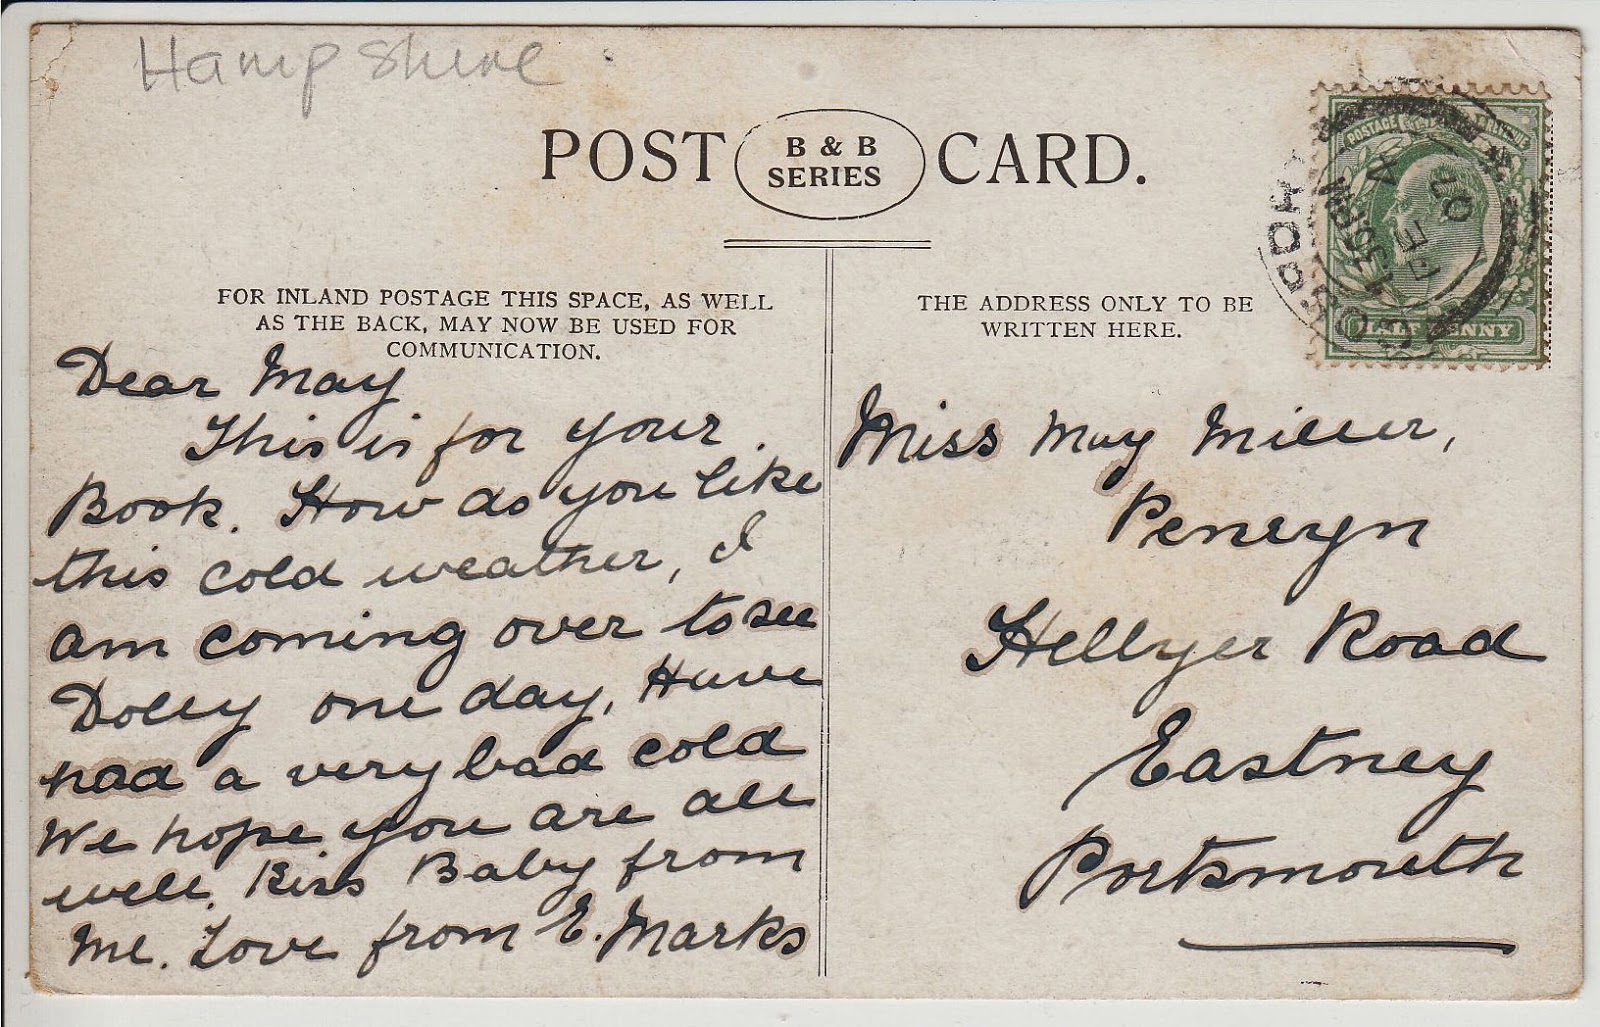 Hampshire
POST B & B SERIES CARD.
FOR INLAND POSTAGE THIS SPACE, AS WELL
AS THE BACK, MAY NOW BE USED FOR
COMMUNICATION.
Dear May
This is for your
Book. How do you like
this cold weather, I
am coming over to see
Dolly one day, Have
had a very bad cold
We hope you are all
well. Kiss Baby from
me. Love from E. Marks
THE ADDRESS ONLY TO BE
WRITTEN HERE.
Miss May Miller,
Penryn
Hellyer Road
Eastney
Portsmouth
POSTAGE
HALF PENNY
FE